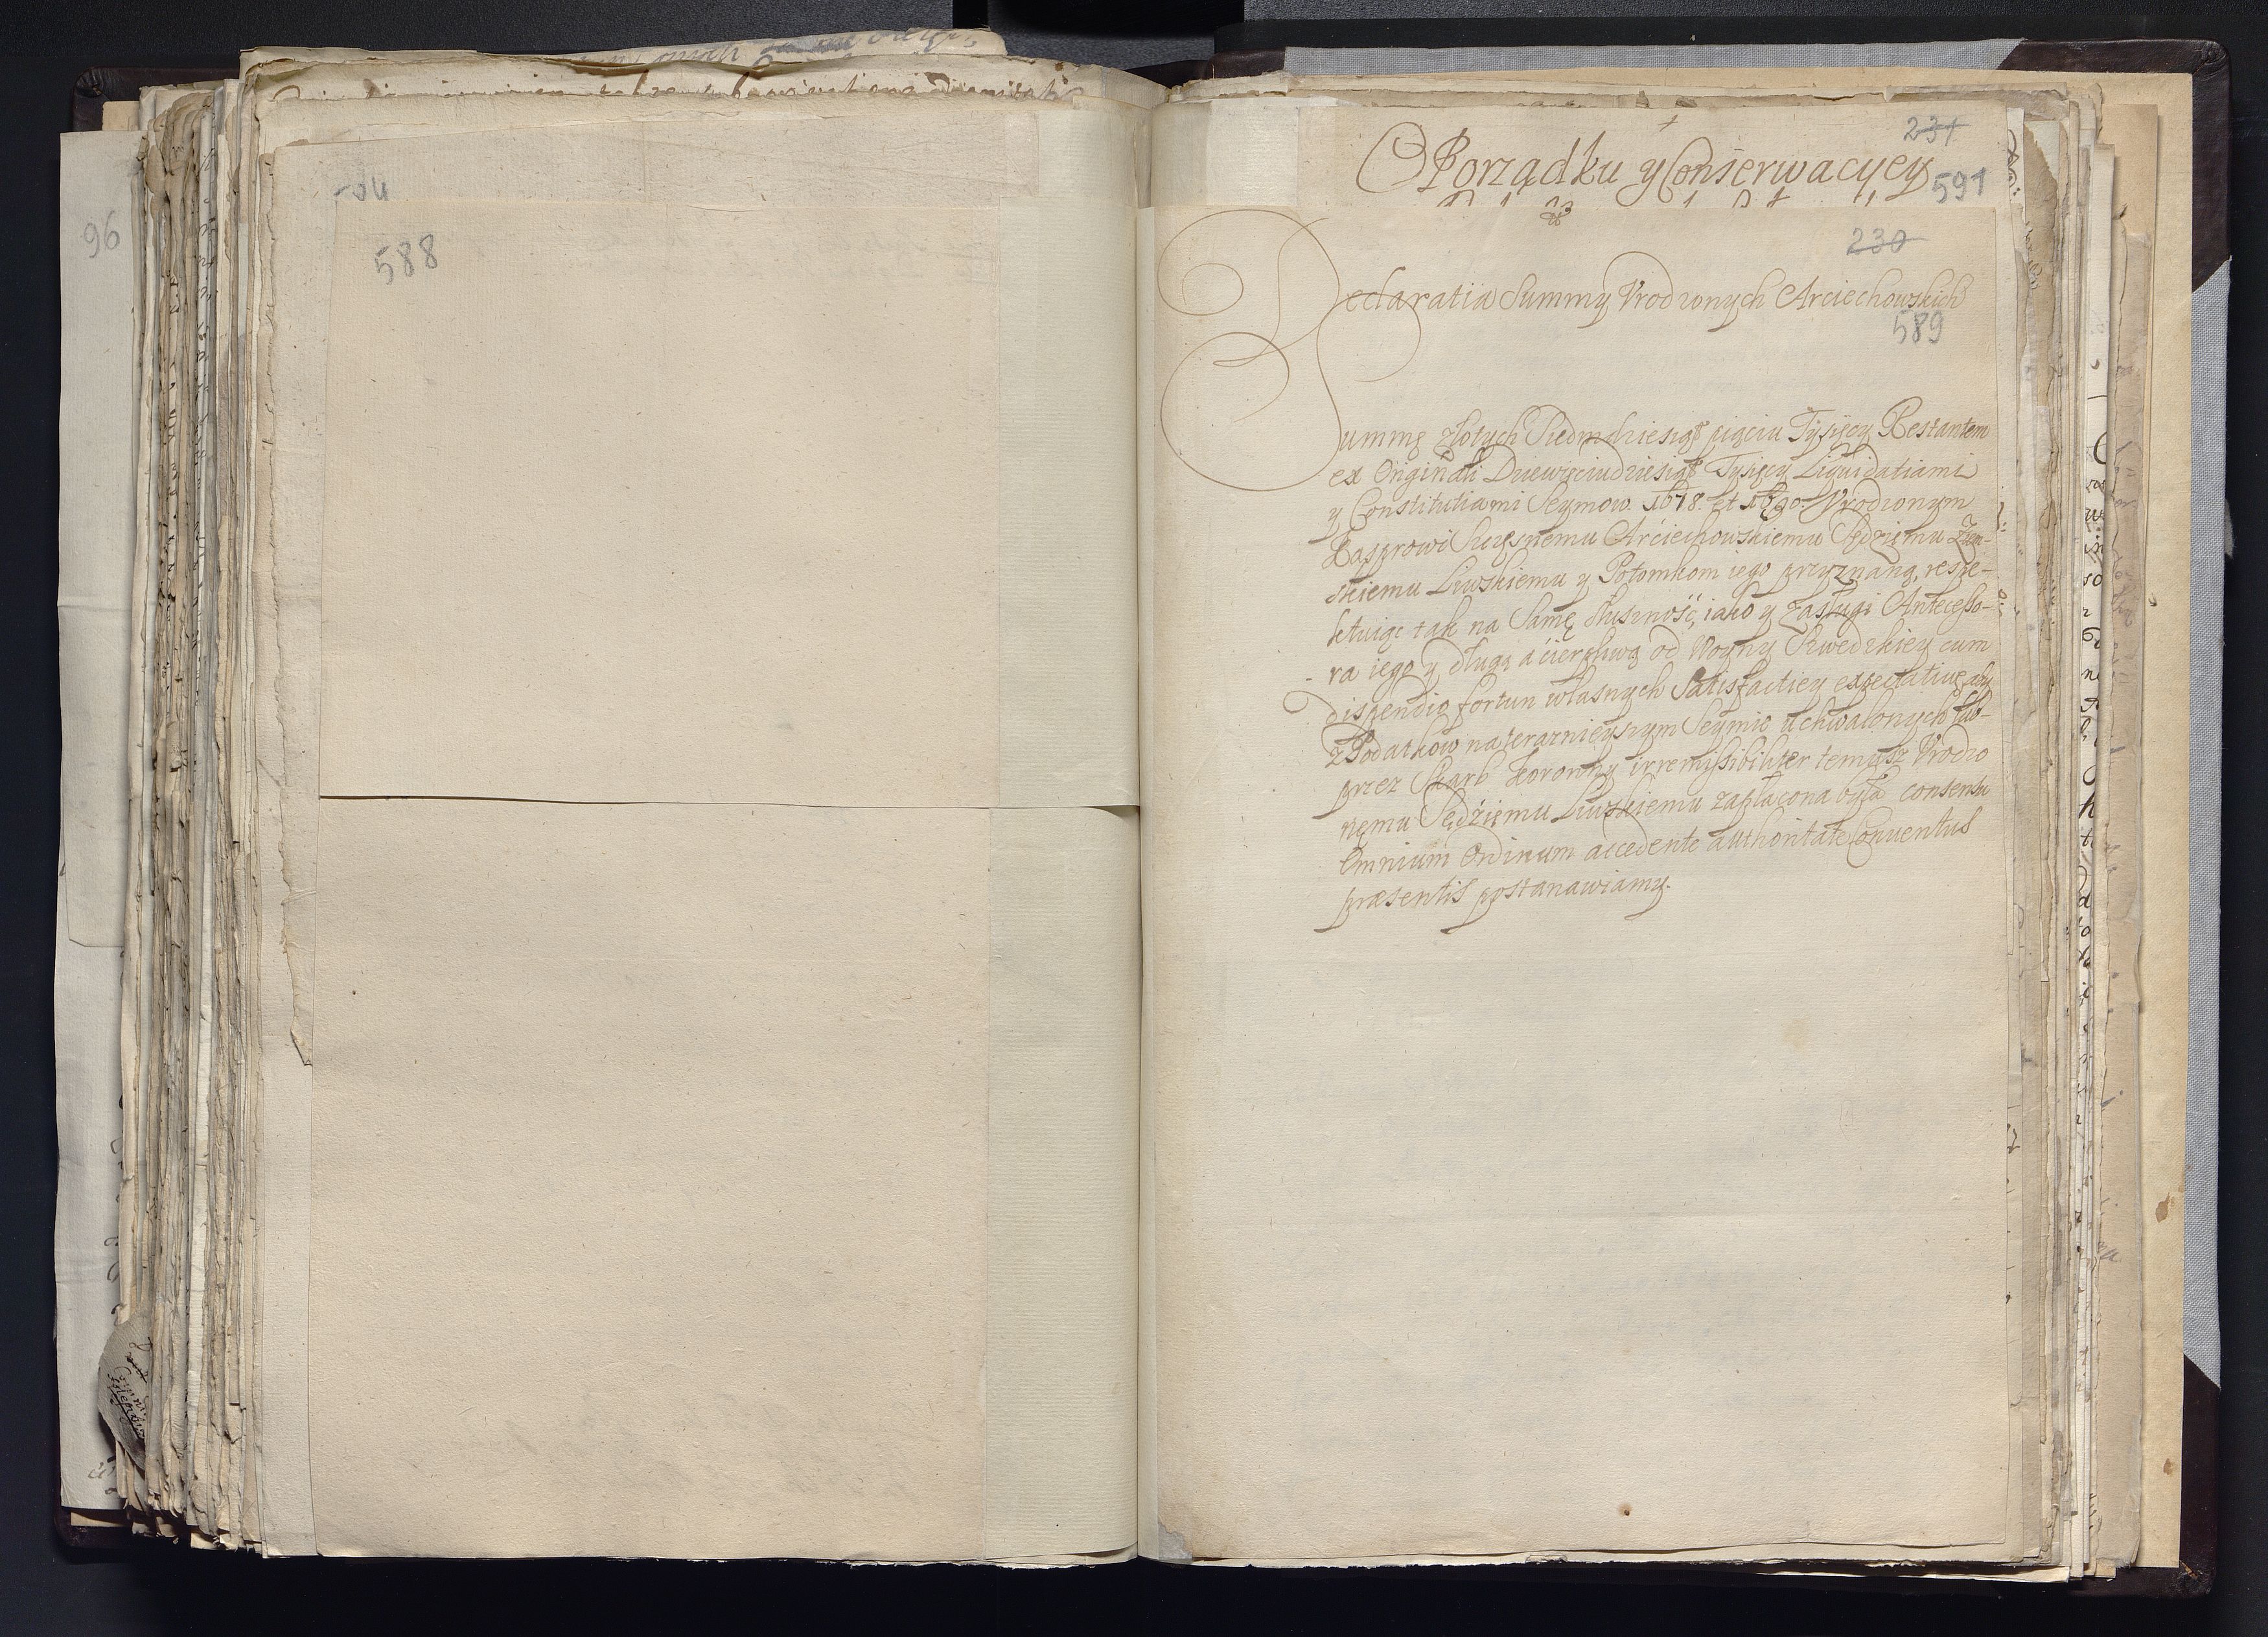 96
588
231
O Porządku y Conserwacyey
591
230
Declaratia Summy Vrodzonych Arciechowskich
589
Summę złotych Siedmdziesiąt pięciu Tysięcy Restantem
ex Originali Dziewięciudziesiąt Tysięcy Liquidatiami
y Constitutiami Seymow. 1678. et 1690. Vrodzonym
Kasprowi Szczęsnemu Arciechowskiemu Sędziemu Zie-
skiemu Liwskiemu y Potomkom iego przyznaną, respe-
ktuiąc tak na Samę słuszność, iako y zasługi Antecesso-
ra iego y długą a cierpliwą od Woyny Szwedzkiey cum
dispendio fortun własnych Satisfactiey expectativę aby
z Podatkow na terazniejszym Seymie uchwalonych
przez Skarb Koronny irremissibiliter temusz Vrodzo
nemu Sędziemu Liwskiemu zapłacona była consensu
Omnium Ordinum accedente authoritate Conuentus
præsentis postanawiamy.